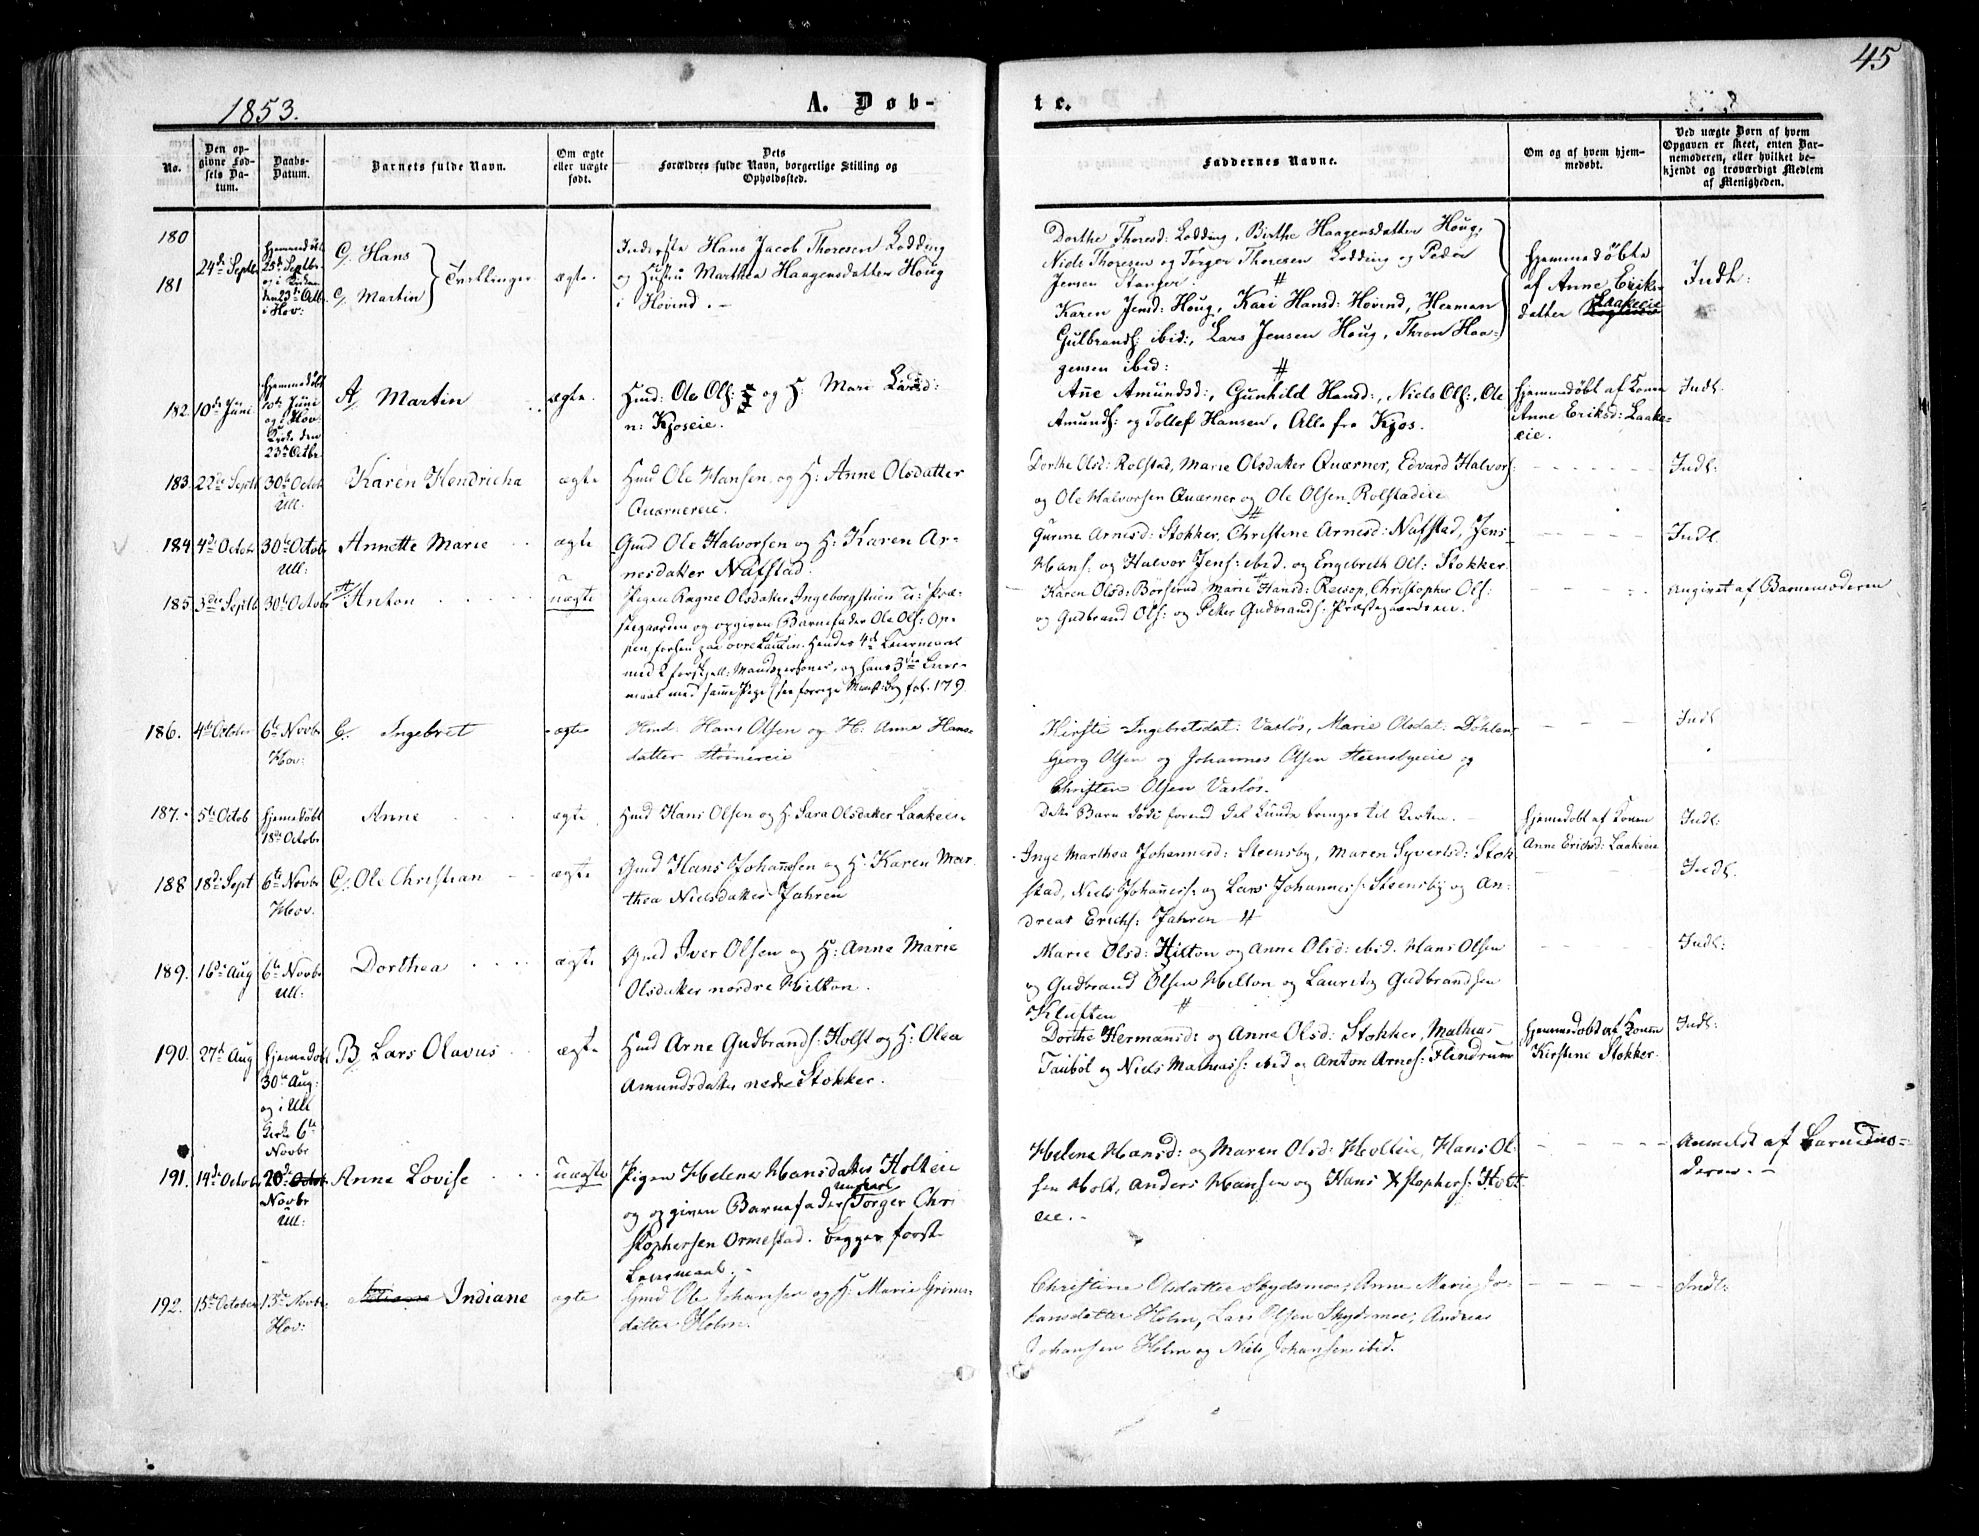 45
1853.
A. Døb-
te.
No.
Den op-
givne Fød-
sels Da-
tum.
Daabs-
Datum.
Barnets fulde Navn.
Om ægte
eller uægte
født.
Dets
Forældres fulde Navn, borgerlige Stilling og
Opholdssted.
Faddernes Navne.
Om og af hvem hjem-
medøbt.
Ved uægte Børn af hvem
Opgaven er skeet, enten Bar-
nemoderen, eller hvilket be-
kjendt og troværdigt Medlem
af Menigheden.
180
181
24de Septb
hjemmedøbt
25de Septbr
og i Kirken
den 23de Octb
i Hov:
Hans
Martin
Tvillinger
ægte
Inderste Hans Jacob Thoresen Lodding
og Hustru Marthea Haagensdatter Houg
i Hovind. -
Dorthe Thoresd: Lodding, Birthe Haagensdatter Houg,
Niels Thoresen og Torger Thoresen Lodding og Peder
Jensen Stanger. #
Karen Jensd: Houg, Kari Hansd: Hovind, Herman
Gulbrands: ibid:, Lars Jensen Houg, Thron Haa-
gensen ibid: #
hjemmedøbte
af Anne Eriks
datter Laakeeie
Indl:
182.
10de Juni
hjemmedøbt
10de Juni
og i Hov
Kirke den
23de Octbr
A, Martin
ægte.
Hmd: Ole Ols: og H: Mari Larsd:
n: Kjoseie.
Anne Amundsd:, Gunhild Hansd:, Niels Ols:, Ole
Amunds: og Tollef Hansen, Alle fra Kjos.
hjemmedøbt af Konen
Anne Eriksd: Laake-
eie.
Indl.
183.
22de Septb
30te Octob
Ull.
Karen Hendricha
ægte
Hmd Ole Hansen og H: Anne Olsdatter
Quærnereie.
Dorthe Olsd: Rolstad, Marie Olsdatter Quærner, Edvard Halvors:
og Ole Halvorsen Quærner og Ole Olsen Rolstadeie
#
Indl:
184
4de Octob
30te Octob
Ull:
Annette Marie
ægte
Gmd Ole Halvorsen og H: Karen Ar-
nesdatter Nafstad.
Gurine Arnesd: Stokker, Christine Arnesd: Nafstad, Jens
Hans: og Halvor Jens: ibid. og Engebreth Ols: Stokker
Indl.
185
3die Septb
30te Octob
Anton
uægte
Pigen Ragne Olsdatter Ingeborgstuen Præ-
stegaarden og opgiven Barnefader Ole Ols:
øvre
Hendes 4de Leiermaal
med 2 forskjell: Mandspersoner, og hans 3die Leier-
maal med samme Pige (see forrige Minist: Bog fol. 179.
Karen Olsd: Børserud, Marie Hansd: Christopher Ols:
og Gudbrand Ols: og Peter Gudbrands: Præstegaardseie.
Angivet af Barnemoderen
186.
4de October
6te Novbr
Hov:
Ingebret
ægte
Hmd: Hans Olsen og H: Anne Hans-
datter
Kirsti Ingebretsdat: Vasløs, Marie Olsdat: Døhlen
Georg Olsen og Johannes Olsen Steensbyeie og
Christen Olsen Vasløs.
Indl
187.
5te Octob
hjemmedøbt
18de Octobr
Anne
ægte
Hmd Hans Olsen og H. Sara Olsdatter Laakeeie
Dette Barn døde forend det kunde bringes til Kirken.
hjemmedøbt af Konen
Anne Erichsd: Laakeeie
Indl:
188
18de Sept
6te Novbr
Hov.
Ole Christian
ægte
Gmd Hans Johannsen og H. Karen Mar
thea Nielsdatter Jahren
Inge Marthea Johannesd: Steensby, Maren Syvertsd: Stok
stad, Niels Johanness: og Lars Johanness: Steensby og An-
dreas Erichs: Jahren #
Indl.
189.
16de Aug
6te Novbr
Ull:
Dorthea
ægte
Gmd Iver Olsen og H: Anne Marie
Olsdatter nordre Hilton.
Marie Olsd: Hilton og Anne Olsd: ibid. Hans Olsen
og Gudbrand Olsen Hilton og Laurits Gudbrandsen
Kluften #
Indl:
190.
27de Aug
hjemedøbt
30te Aug:
og i Ull
Kirke 6te
Novbr
B, Lars Olavus
ægte
Hmd Arne Gudbrands: Holst og H: Olea
Amundsdatter nedre Stokker.
Dorthe Hermansd: og Anne Olsd: Stokker, Mathias
Taubøl og Niels Mathiass: ibid og Anton Arnes: Flindrum
hjemmedøbt af Konen
Kirstine Stokker.
Indl:
191.
14de Octob
20de
Novbr
Ull:
Anne Lovise
uægte
Pigen Helene Hansdatter Holteie
og opgiven Barnefader Ungkarl Torger Chri
stophersen Ormestad. begges første
Leiermaal. -
Helene Hansd: og Maren Olsd: Holteie, Hans Ol-
sen Holt, Anders Hansen og Hans Xstophers: Holt
eie. -
Anmeldt af Barnemo-
deren. -
192.
15de October
13de Novbr
Hov:
Indiane
ægte
Gmd Ole Johansen og H: Marie Grims-
datter Holm.
Christine Olsdatter Skydsmoe, Anne Marie Jo-
hansdatter Holm, Lars Olsen Skydsmoe, Andreas
Johansen Holm og Niels Johansen ibid.
Indl: